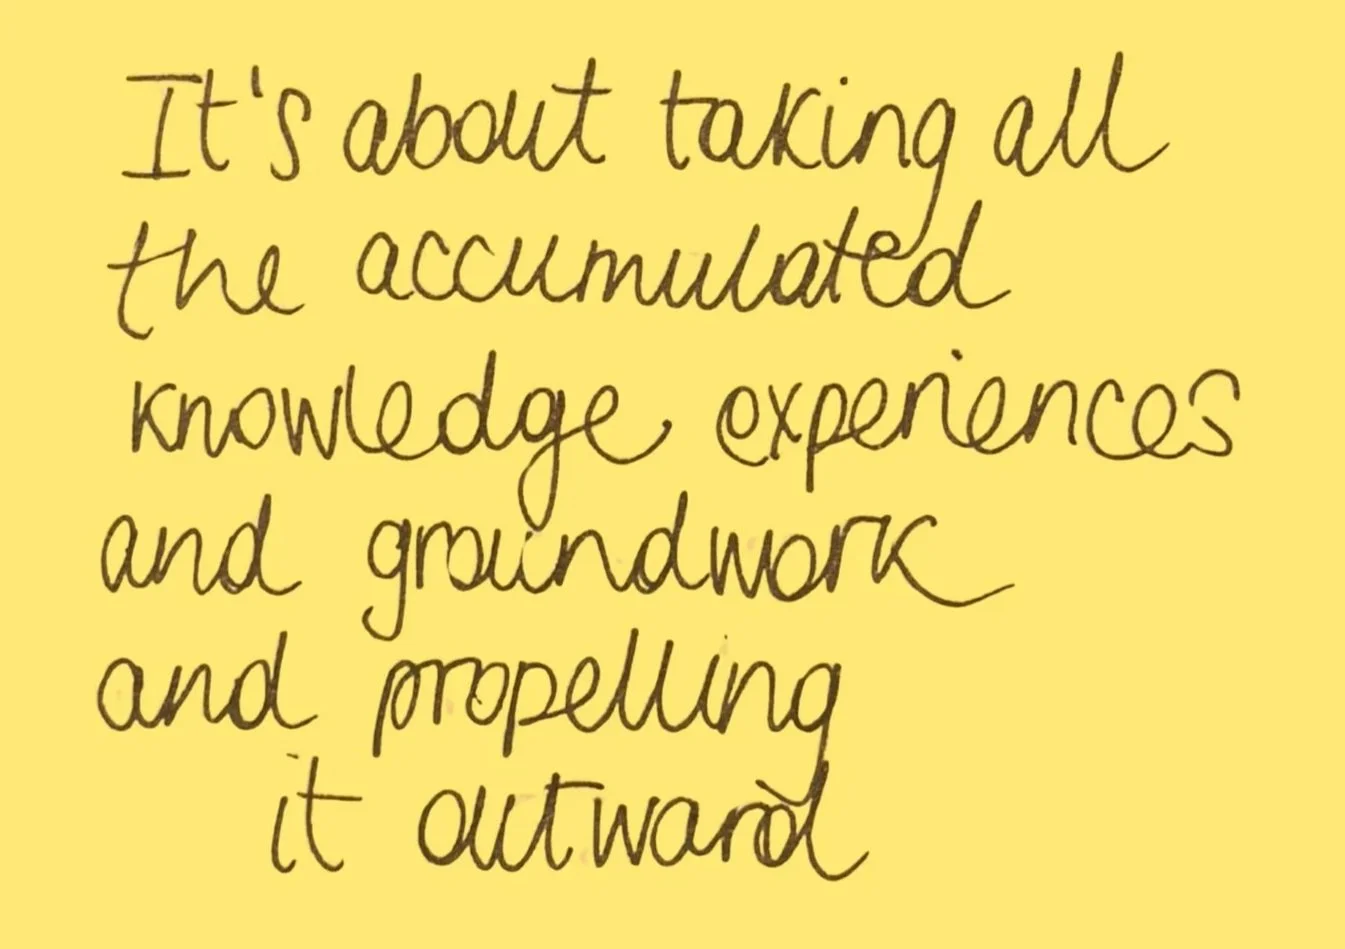 It's about taking all
the accumulated
knowledge experiences
and groundwork
and propelling
it outward